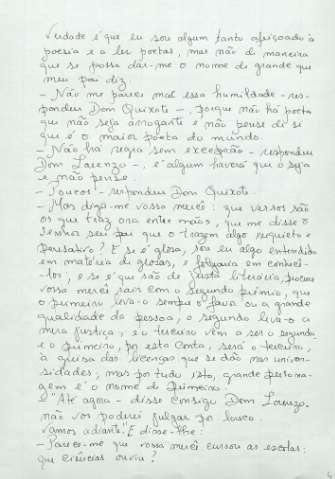 Verdade é que eu sou algum tanto afeiçoado à
poesia e a ler poetas, mas não de maneira
que se possa dar-me o nome de grande que
meu pai diz.
- Não me parece mal essa humildade - res-
pondeu Dom Quixote -, porque não há poeta
que não seja arrogante e não pense de si
que é o maior poeta do mundo.
- Não há regra sem excepção - respondeu
Dom Lorenzo -, e algum haverá que o seja
e não pense.
- Poucos - respondeu Dom Quixote.
- Mas diga-me vossa mercê: que versos são
os que traz ora entre mãos, que me disse o
senhor seu pai que o trazem algo inquieto e
pensativo? E se é glosa, sou eu algo entendido
em matéria de glosas, e folgaria em conhecê-
los, e se é que são de justa literária, procure
vossa mercê sair com o segundo prémio, que
o primeiro leva-o sempre o favor ou a grande
qualidade da pessoa, o segundo leva-o a
mera justiça, e o terceiro vem a ser o segundo,
e o primeiro, por esta conta, será o terceiro,
à guisa das licenças que se dão nas univer-
sidades, mas por tudo isto, grande persona-
gem é o nome de primeiro.
"Até agora - disse consigo Dom Lorenzo,
não vos poderei julgar por louco.
Vamos adiante." E disse-lhe:
- Parece-me que vossa mercê cursou as escolas:
que ciências ouviu?